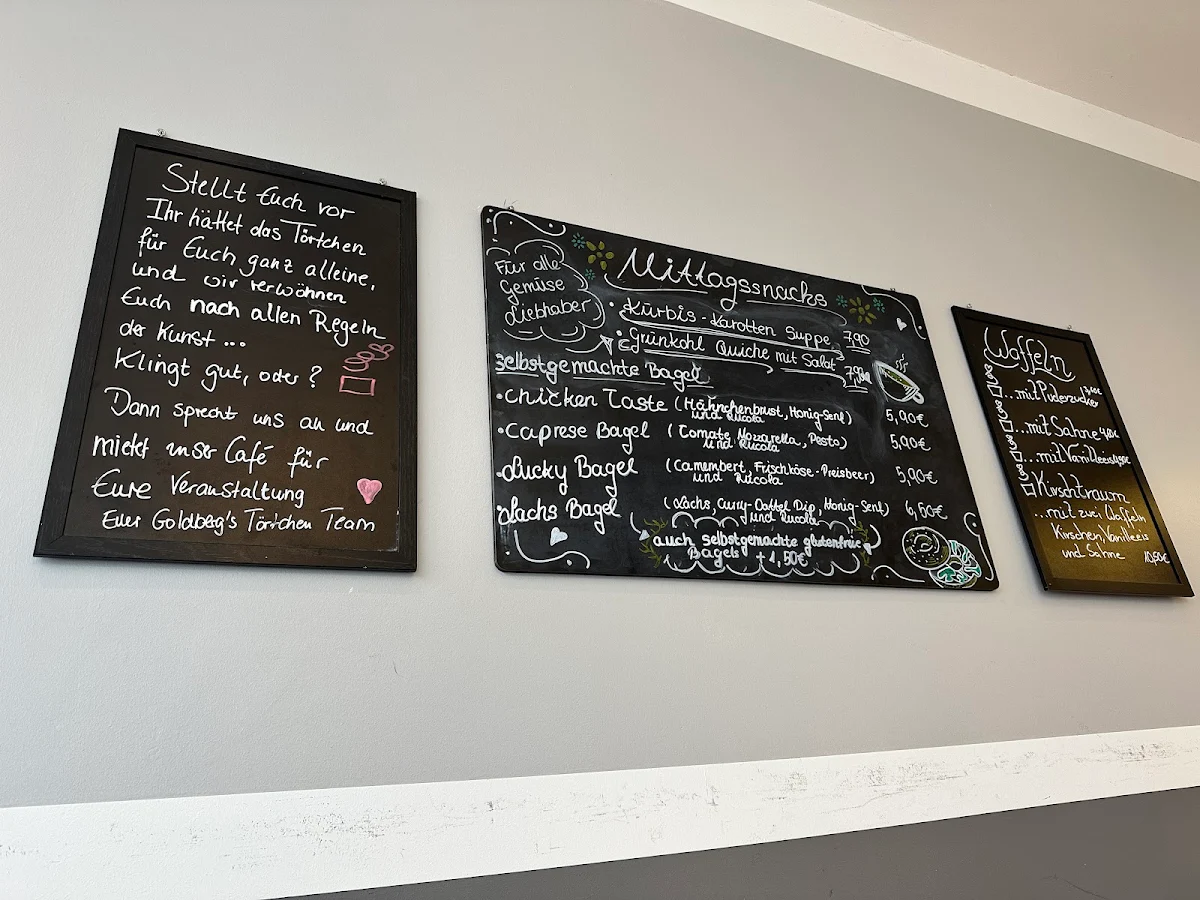 Stellt Euch vor
Ihr hättet das Törtchen
für Euch ganz alleine,
und wir verwöhnen
Euch nach allen Regeln
der Kunst ...
Klingt gut, oder ?
Dann sprecht uns an und
mietet unser Café für
Eure Veranstaltung
Euer Goldberg's Törtchen Team
Für alle
Gemüse
Liebhaber
Mittagssnacks
• Kürbis - Karotten Suppe 7,90
• Grünkohl Quiche mit Salat
selbstgemachte Bagel
• Chicken Taste (Hähnchenbrust, Honig-Senf) 5,90€
und Rucola
• Caprese Bagel (Tomate, Mozzarella, Pesto) 5,90€
und Rucola
• Lucky Bagel (Camembert, Frischkäse-Preisbeer) 5,90€
und Rucola
• Lachs Bagel (Lachs, Curry-Dattel Dip, Honig-Senf) 6,50€
und Rucola
auch selbstgemachte glutenfreie
Bagels +1,50€
Waffeln
...mit Puderzucker
...mit Sahne
...mit Vanilleeis
Kirschtraum
...mit zwei Waffeln
Kirschen, Vanilleeis
und Sahne 10,50€